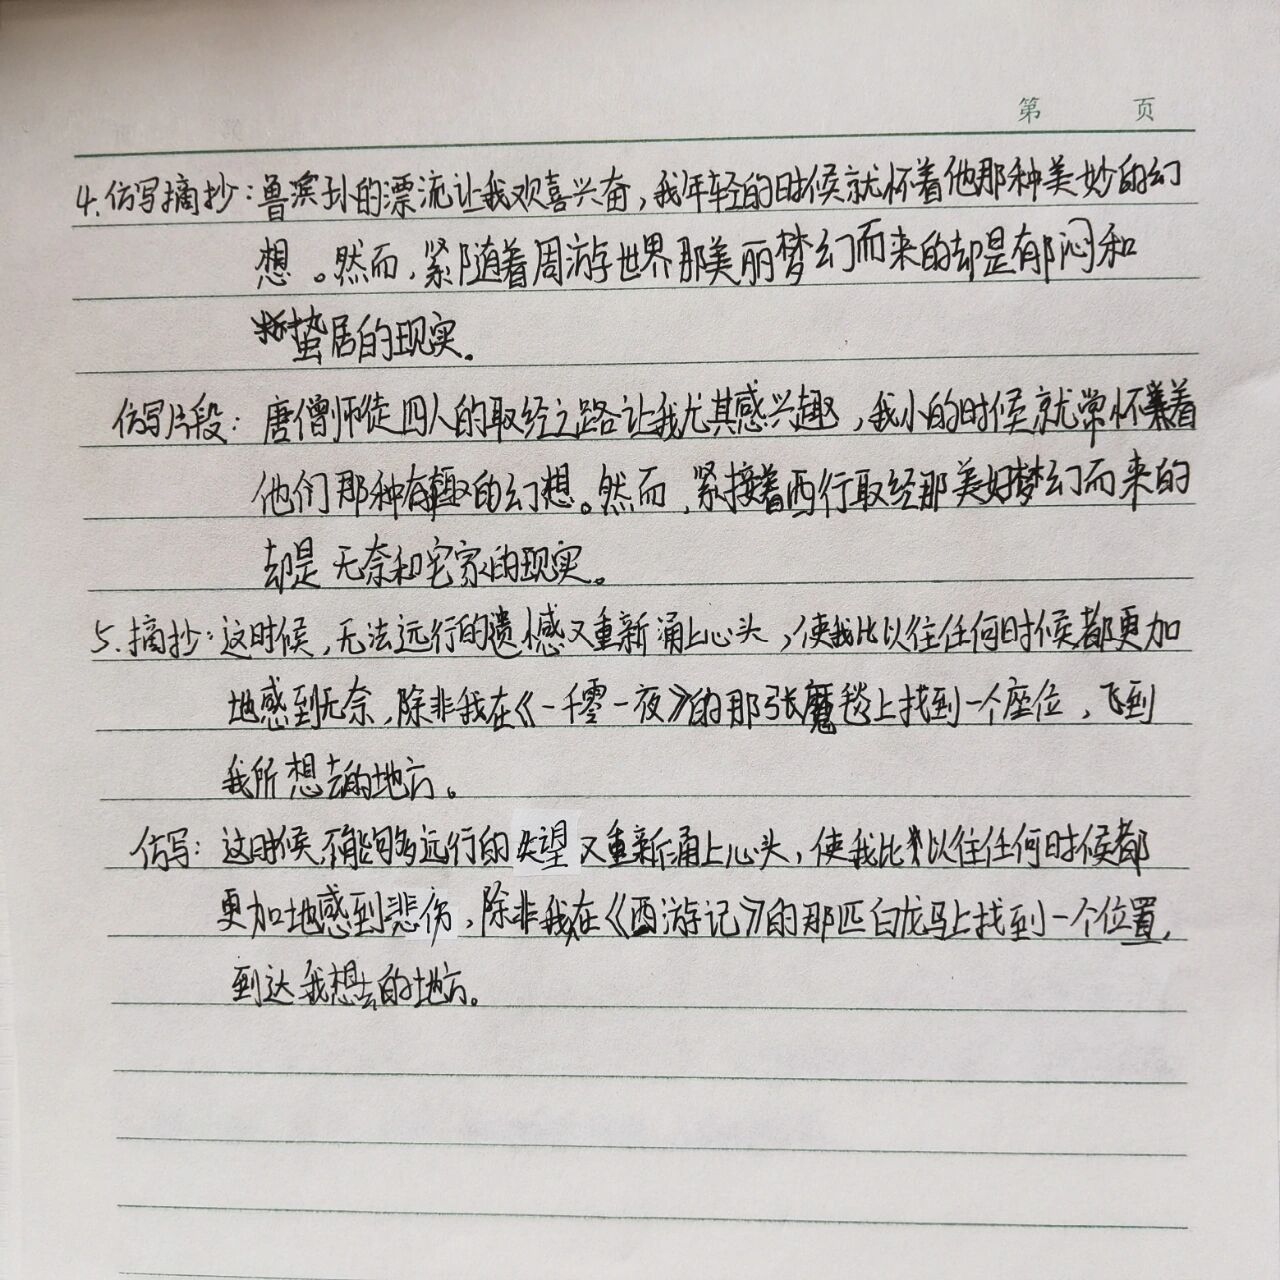 第 页
4.仿写摘抄:鲁滨孙的漂流让我欢喜兴奋,我年轻的时候就怀着他那种美妙的幻
想。然而,紧随着周游世界那美丽梦幻而来的却是郁闷和
蛰居的现实。
仿写片段:唐僧师徒四人的取经之路让我尤其感兴趣,我小的时候就常怀着
他们那种有趣的幻想。然而,紧接着西行取经那美好梦幻而来的
却是无奈和宅家的现实。
5.摘抄:这时候,无法远行的遗憾又重新涌上心头,使我比以往任何时候都更加
地感到无奈,除非我在《一千零一夜》的那张魔毯上找到一个座位,飞到
我所想去的地方。
仿写:这时候不能够多远行的失望又重新涌上心头,使我比以往任何时候都
更加地感到悲伤,除非我在《西游记》的那匹白龙马上找到一个位置,
到达我想去的地方。